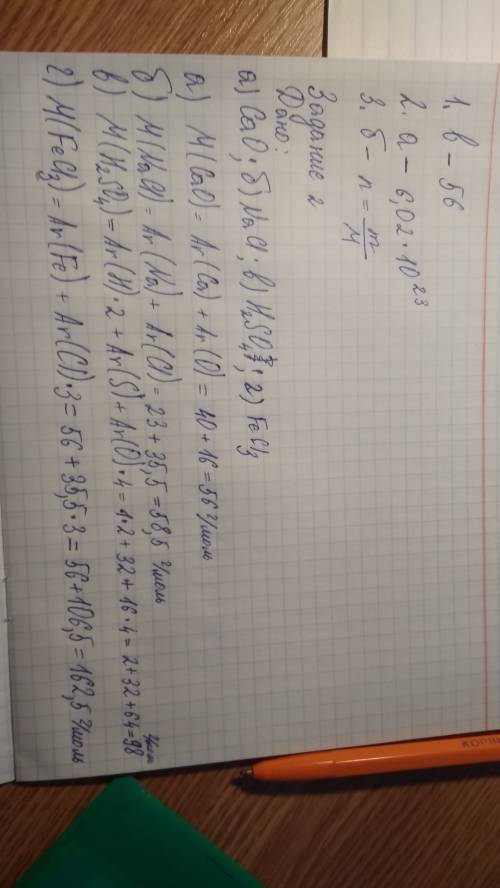 1. в – 56
2. а – 6,02 · 10²³
3. б – n = m/M
Задание 2
Дано:
а) CaO; б) NaCl; в) H₂SO₄; г) FeCl₃
а) M(CaO) = Ar(Ca) + Ar(O) = 40 + 16 = 56 г/моль
б) M(NaCl) = Ar(Na) + Ar(Cl) = 23 + 35,5 = 58,5 г/моль
в) M(H₂SO₄) = Ar(H) · 2 + Ar(S) + Ar(O) · 4 = 1 · 2 + 32 + 16 · 4 = 2 + 32 + 64 = 98 г/моль
г) M(FeCl₃) = Ar(Fe) + Ar(Cl) · 3 = 56 + 35,5 · 3 = 56 + 106,5 = 162,5 г/моль